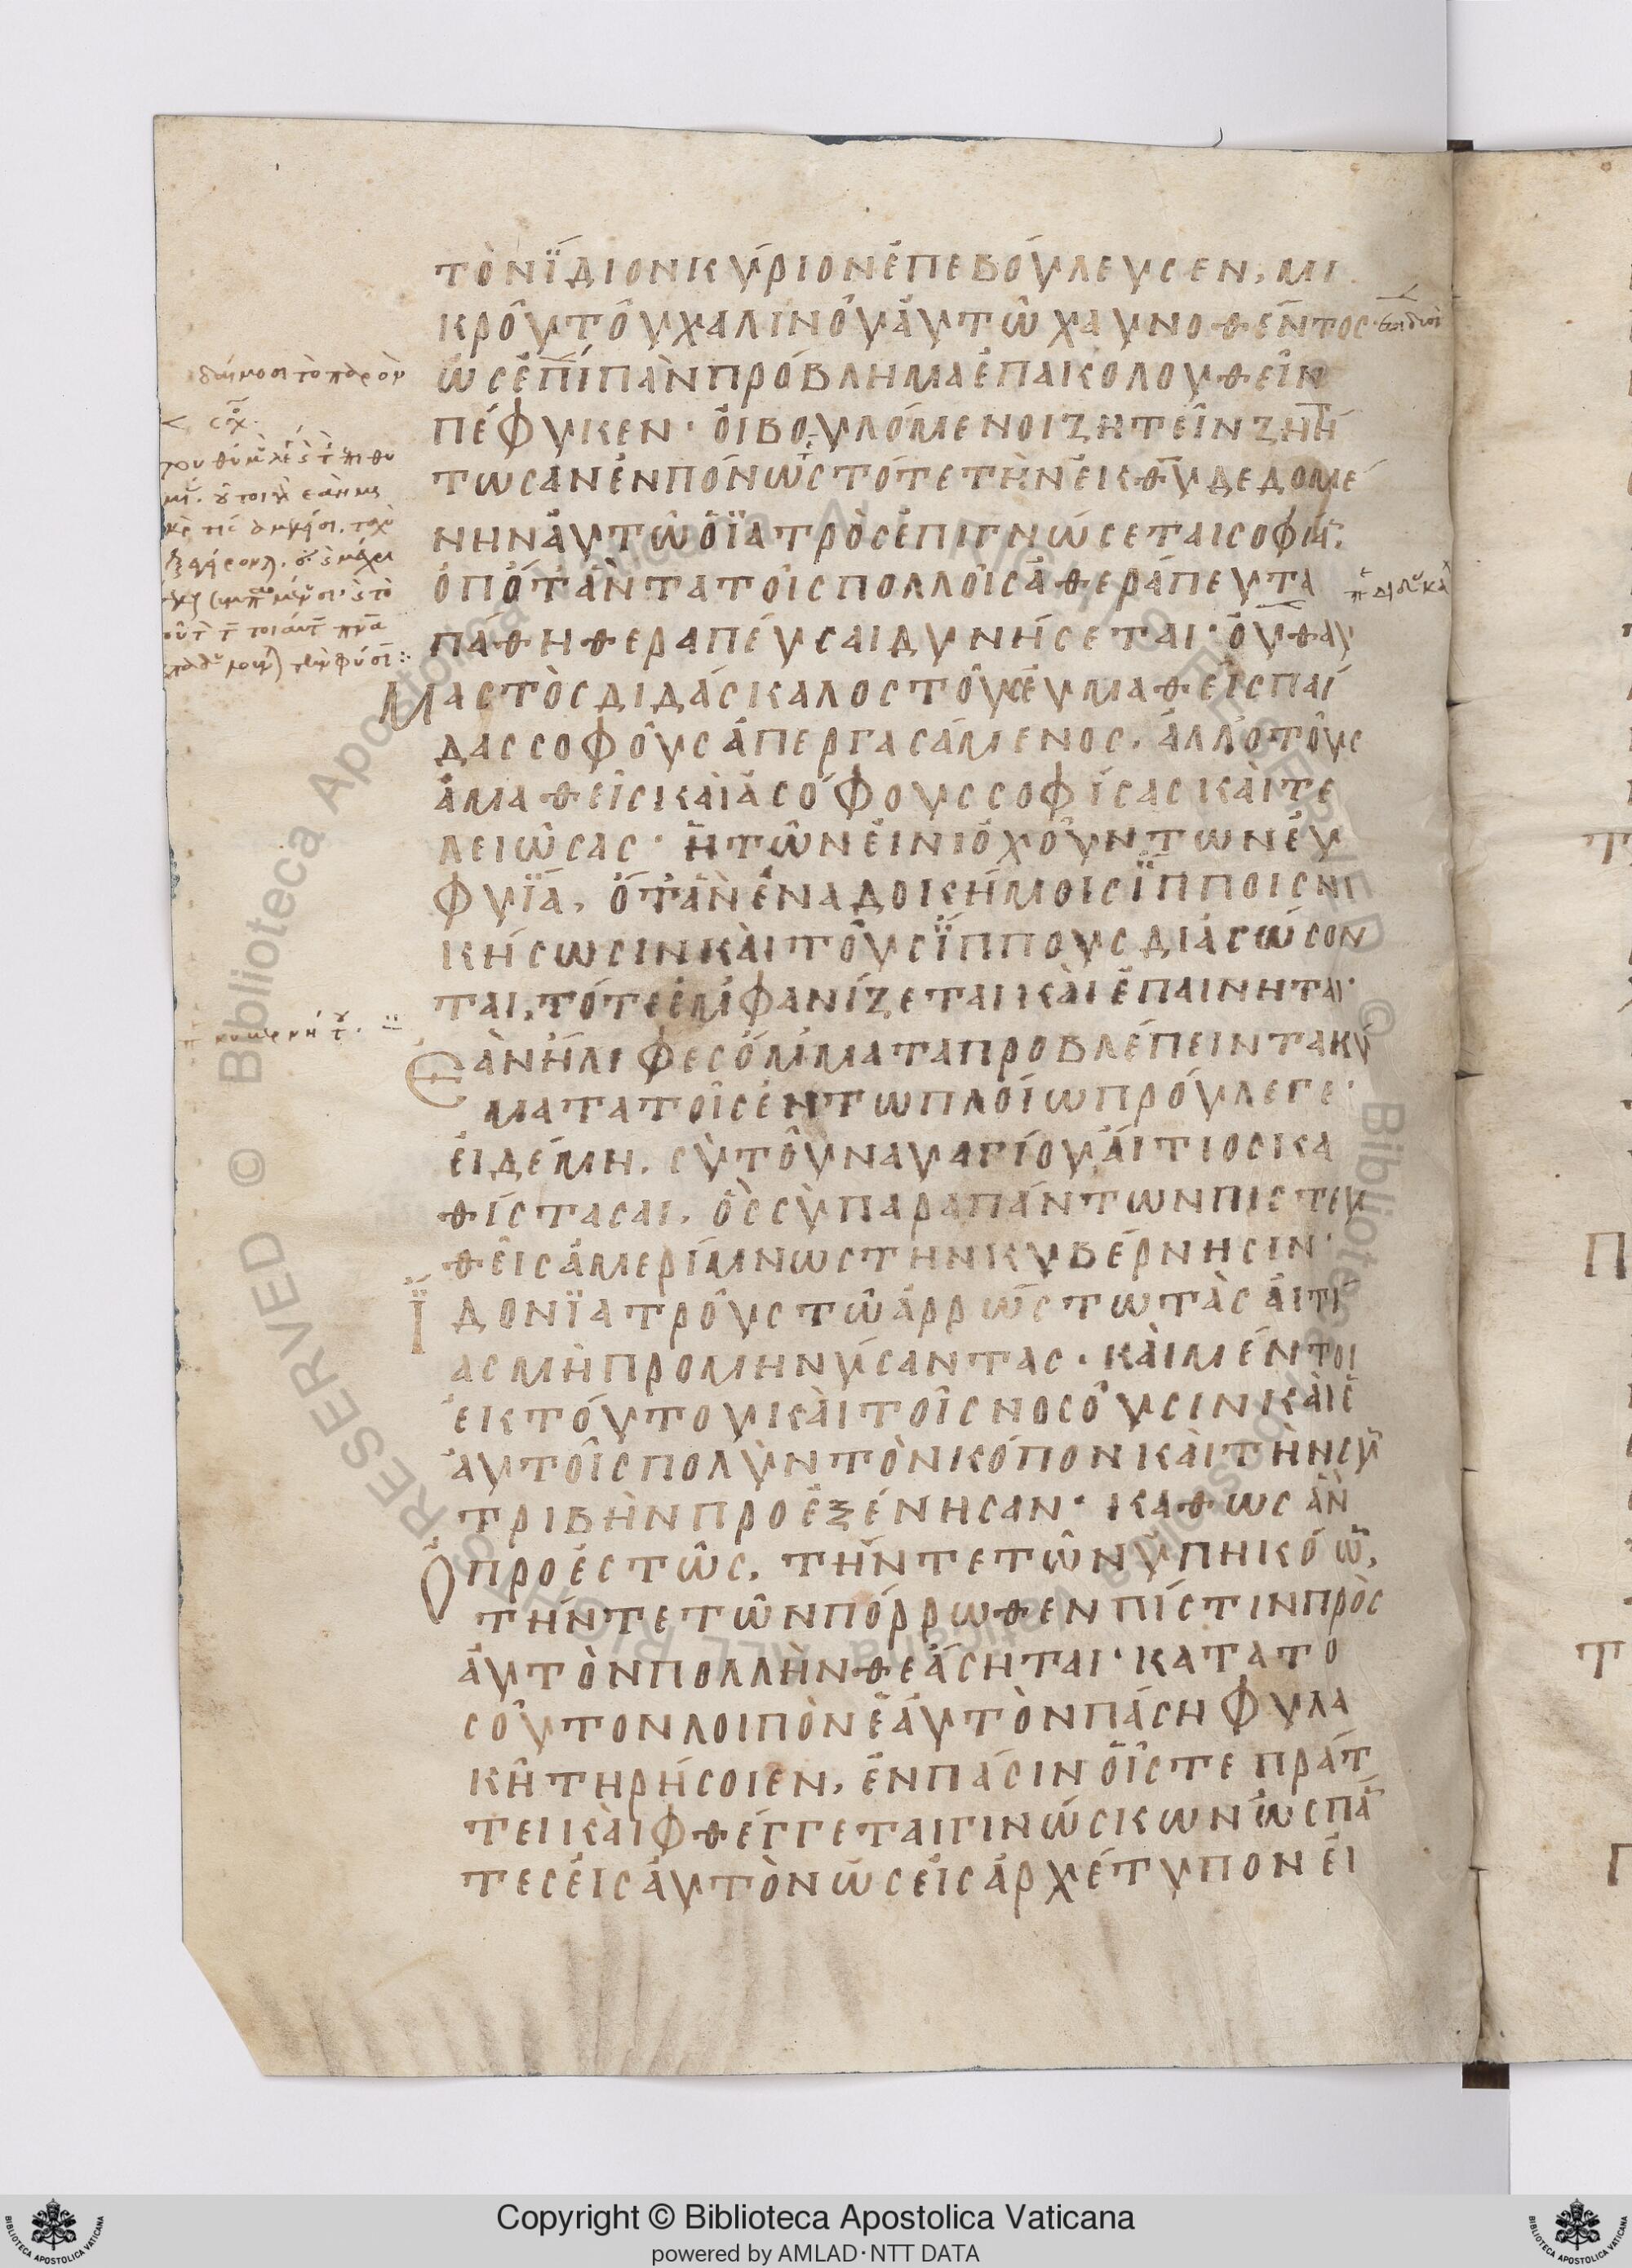 ΤῸΝΪ́ΔΙΟΝΚΎΡΙΟΝἘΠΕΒΟΎΛΕΥΣΕΝ, ΜΙ
ΚΡΟΥ͂ΤΟΥ͂ΧΑΛΙΝΟΥ͂ἈΥΤΩ͂ΧΑΥΝΟΘΈΝΤΟΣ·
ὩΣἘΠΊΠᾺΝΠΡΌΒΛΗΜΑἘΠΑΚΟΛΟΥΘΕΙ͂Ν
ΠΈΦΥΚΕΝ · ὉΙΒΟΥΛΌΜΕΝΟΙΖΗΤΕΙ͂Ν
ΤΩΣΑΝἘΝΠΌΝΩΣΤΌΤΕΤῊΝἘΚΘΥΔΕΔΟΜΈ
ΝΗΝἈΥΤΩ͂ὉΪΑΤΡῸΣἘΠΙΓΝΏΣΕΤΑΙΣΟΦΊΑΝ,
ὉΠΌΤᾺΝΤΑΤΟΙ͂ΣΠΟΛΛΟΙ͂ΣἈΘΕΡΆΠΕΥΤΑ
ΠΆΘΗΘΕΡΑΠΕΥ͂ΣΑΙΔΥΝΉΣΕΤΑΙ· ὈΥΘΑΥ
ΜΑΣΤῸΣΔΙΔΆΣΚΑΛΟΣΤΟῪΣἘΥΜΑΘΕΙ͂ΣΠΑΙ͂
ΔΑΣΣΟΦΟῪΣἈΠΕΡΓΑΣΆΜΕΝΟΣ, ἈΛΛΌΤΟῪΣ
ἈΜΑΘΕΙ͂ΣΚΑῚἈΣΌΦΟΥΣΣΟΦΊΣΑΣΚΑῚΤΕ
ΛΕΙΏΣΑΣ · ἩΤΩ͂ΝἘΙΝΙΌΧΟΎΝΤΩΝἘΥ
ΦΥΪΆ, ὍΤΑΝἘΝΑΔΟΚΉΜΟΙΣΪ́ΠΠΟΙΣΝΙ
ΚΉΣΩΣΙΝΚΑῚΤΟῪΣΪ́ΠΠΟΥΣΔΙΑΣΏΣΟΝ
ΤΑΙ, ΤΌΤΕἘΜΦΑΝΊΖΕΤΑΙΚΑῚἘΠΑΙΝΗΤΑΙ·
ἘᾺΝΉΛΙΦΕΣὈΜΜΑΤΑΠΡΟΒΛΈΠΕΙΝΤΑΚΎ
ΜΑΤΑΤΟΙ͂ΣἘΝΤΩΠΛΟΊΩΠΡΟΎΛΕΓΕ·
ἘΙΔΈΜΗ, ΣῪΤΟΥ͂ΝΑΥΑΓΊΟΥἌΙΤΙΟΣΚΑ
ΘΊΣΤΑΣΑΙ, ὉΣΣῪΠΑΡΑΠΆΝΤΩΝΠΙΣΤΕΥ
ΘΕῚΣἈΜΕΡΊΜΝΩΣΤΗΝΚΥΒΈΡΝΗΣΙΝ·
Ϊ́ΔΟΝΪΑΤΡΟῪΣΤΩ͂ἈΡΡΏΣΤΩΤᾺΣἈΙΤΊ
ΑΣΜῊΠΡΟΜΗΝΎΣΑΝΤΑΣ · ΚΑῚΜΈΝΤΟΙ
ἘΚΤΟΎΤΟΥΚΑῚΤΟΙ͂ΣΝΟΣΟΥ͂ΣΙΝΚΑῚἙ
ΑΥΤΟΙ͂ΣΠΟΛῪΝΤῸΝΚΌΠΟΝΚΑῚΤῊΝΣΥΝ
ΤΡΙΒῊΝΠΡΟἘΞΈΝΗΣΑΝ · ΚΑΘΩΣᾺΝ
ὉΠΡΟἘΣΤΏΣ, ΤΉΝΤΕΤΩ͂ΝὙΠΗΚΌΩΝ,
ΤΉΝΤΕΤΩ͂ΝΠΌΡΡΩΘΕΝΠΊΣΤΙΝΠΡῸΣ
ἈΥΤῸΝΠΟΛΛῊΝΘΕΆΣΗΤΑΙ · ΚΑΤΑΤΟ
ΣΟΥ͂ΤΟΝΛΟΙΠῸΝἙΑΥΤῸΝΠΆΣΗΦΥΛΑ
ΚΗ͂ΤΗΡΉΣΟΙΕΝ, ἘΝΠΆΣΙΝὉΙ͂ΣΤΕΠΡΆΤ
ΤΕΙΚΑῚΦΘΈΓΓΕΤΑΙΓΙΝΏΣΚΩΝὩΣΠΆΝ
ΤΕΣἘΙΣἈΥΤῸΝὩΣἘΙΣἈΡΧΈΤΥΠΟΝἘΙ
Copyright © Biblioteca Apostolica Vaticana
powered by AMLAD·NTT DATA